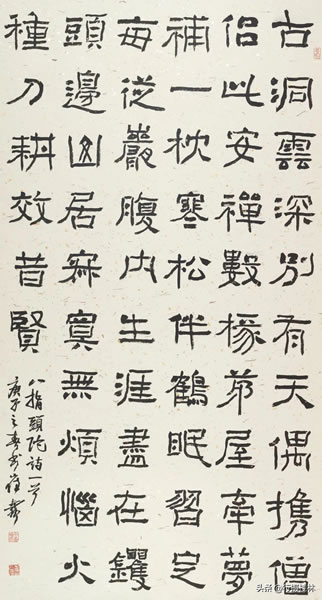 古洞雲深別有天偶携僧
侶此安禪數椽茅屋牽夢
補一枕寒松伴鶴眠習定
每從巖腹內生涯盡在钁
頭邊山居寂寞無煩惱火
種刀耕效昔賢
八指頭陀詩一首
庚子之春
头条